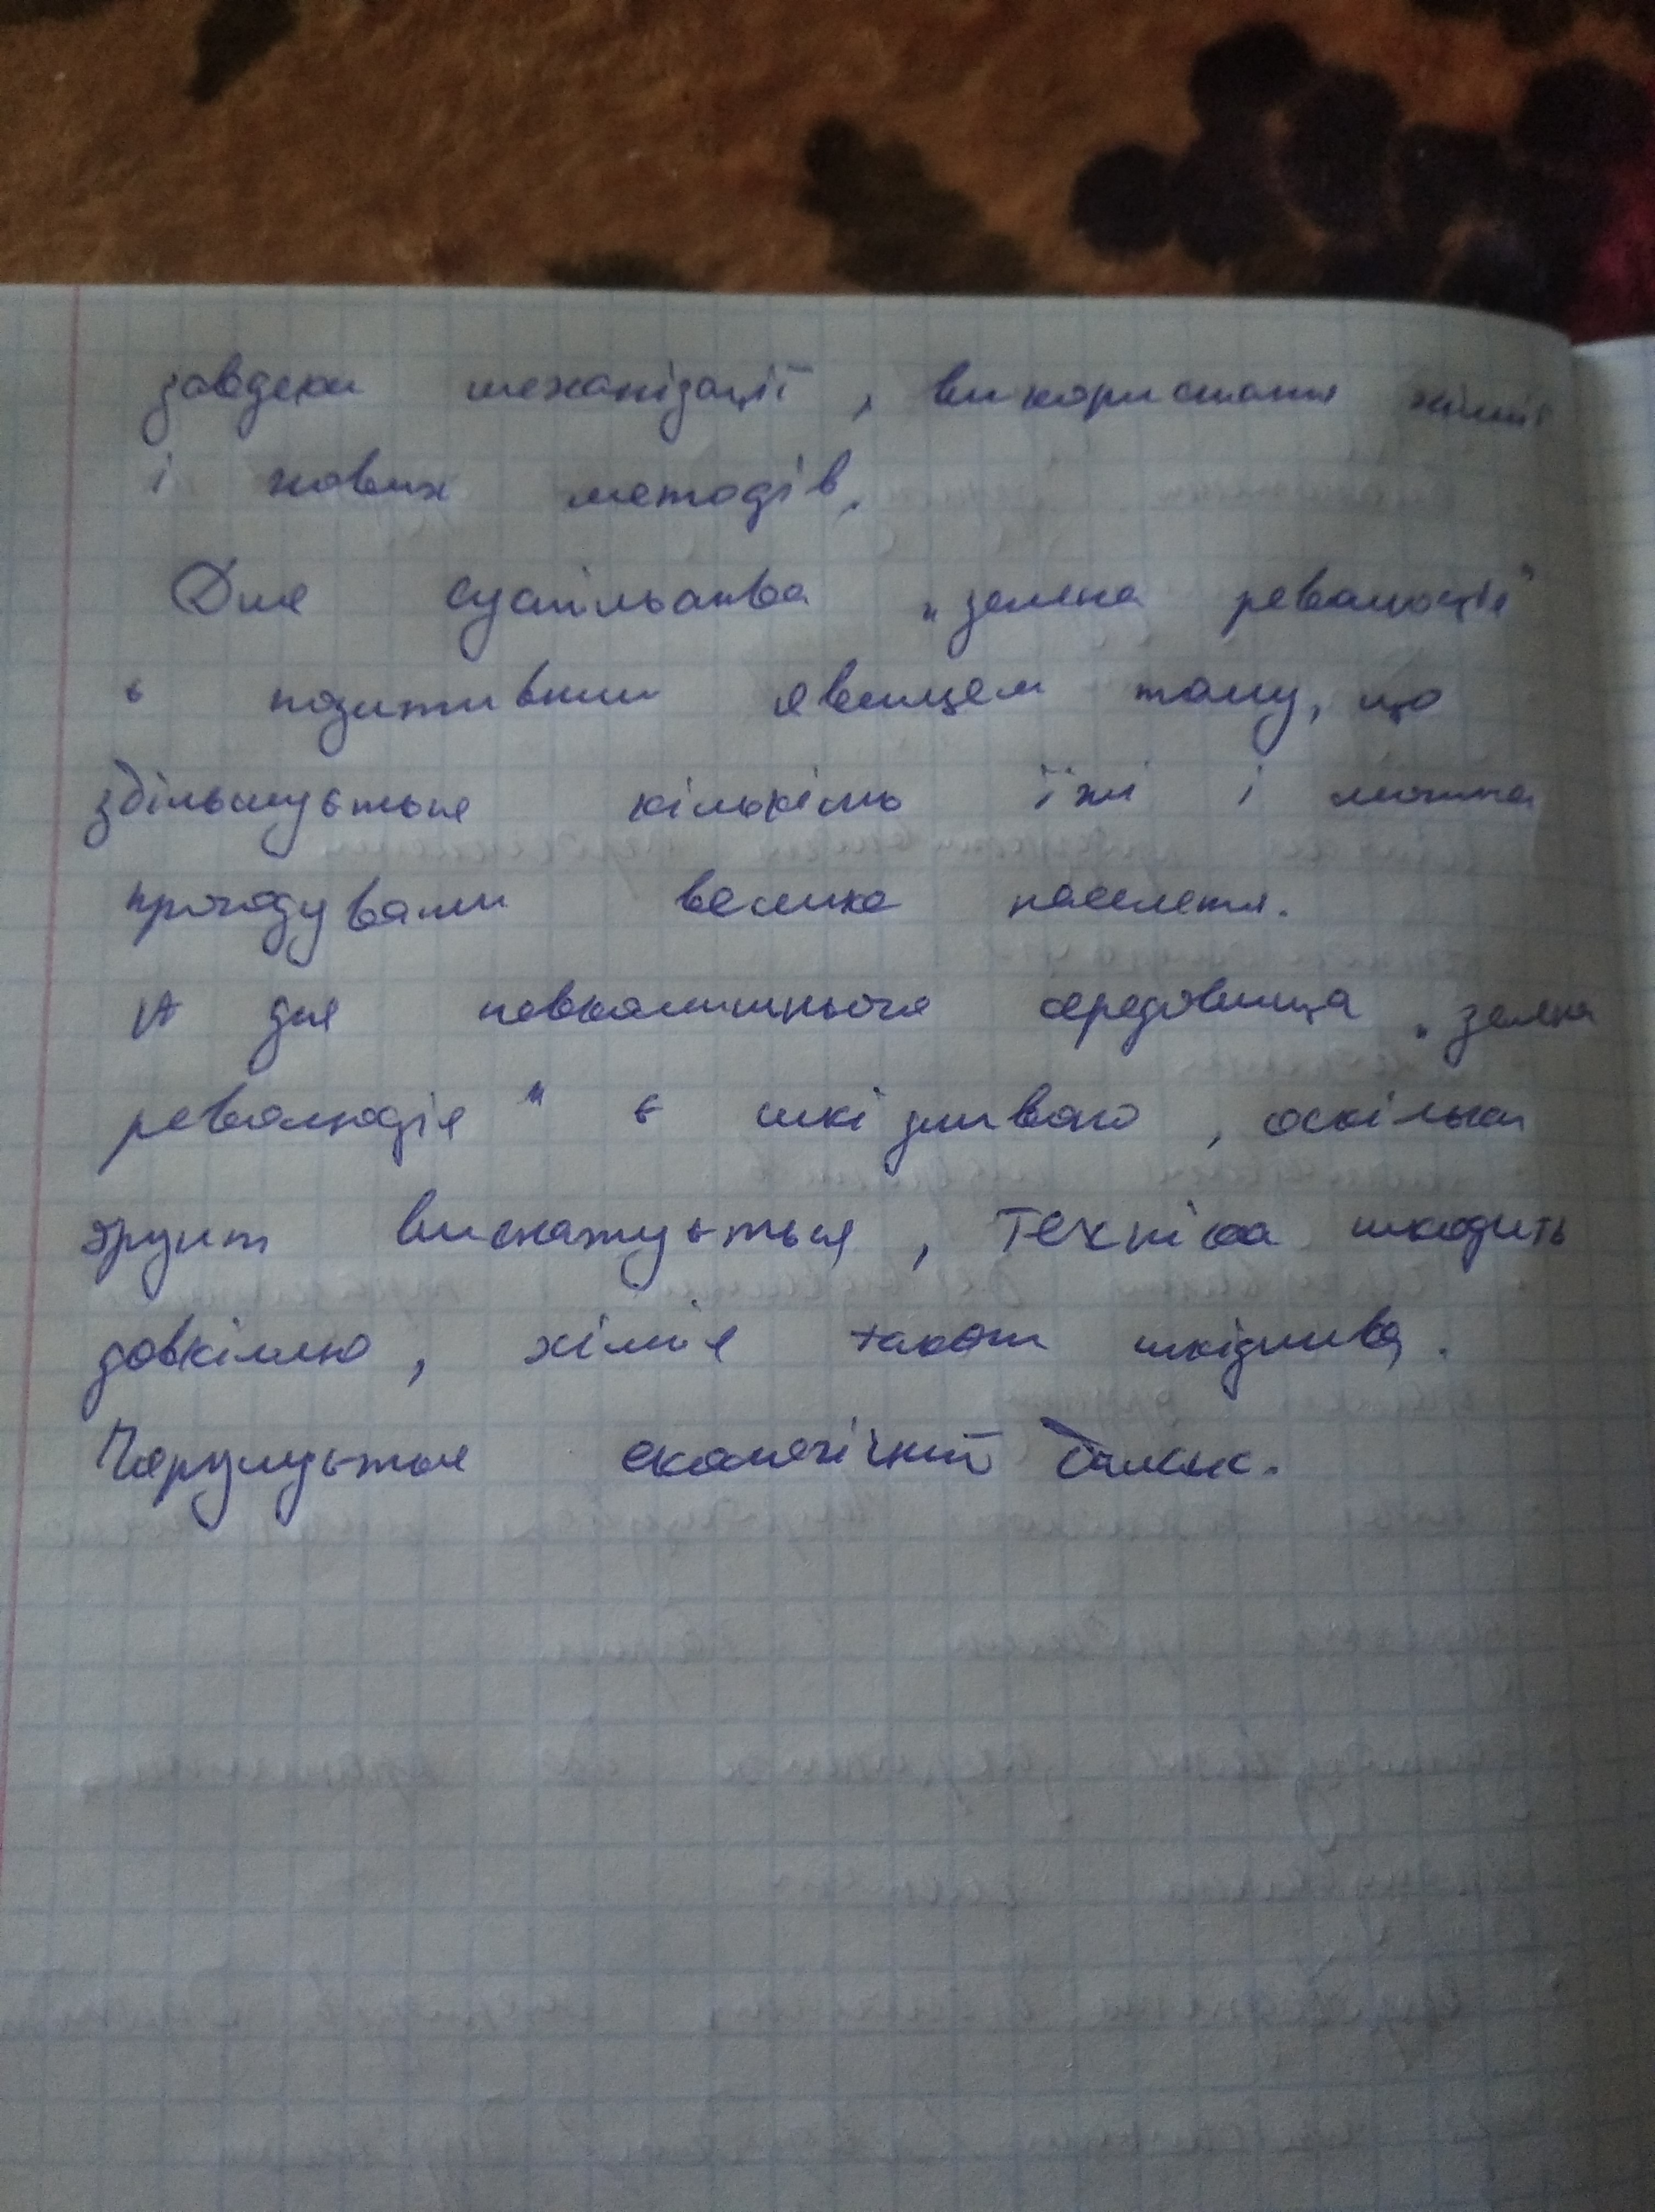 завдяки механізації, використання хімії
і нових методів.
Для суспільства „зелена революція"
є позитивним явищем тому, що
збільшується кількість їжі і можна
прогодувати велике населення.
А для навколишнього середовища „зелена
революція" є шкідливою, оскільки
грунт виснажується, техніка шкодить
довкіллю, хімія також шкідлива.
Порушується екологічний баланс.